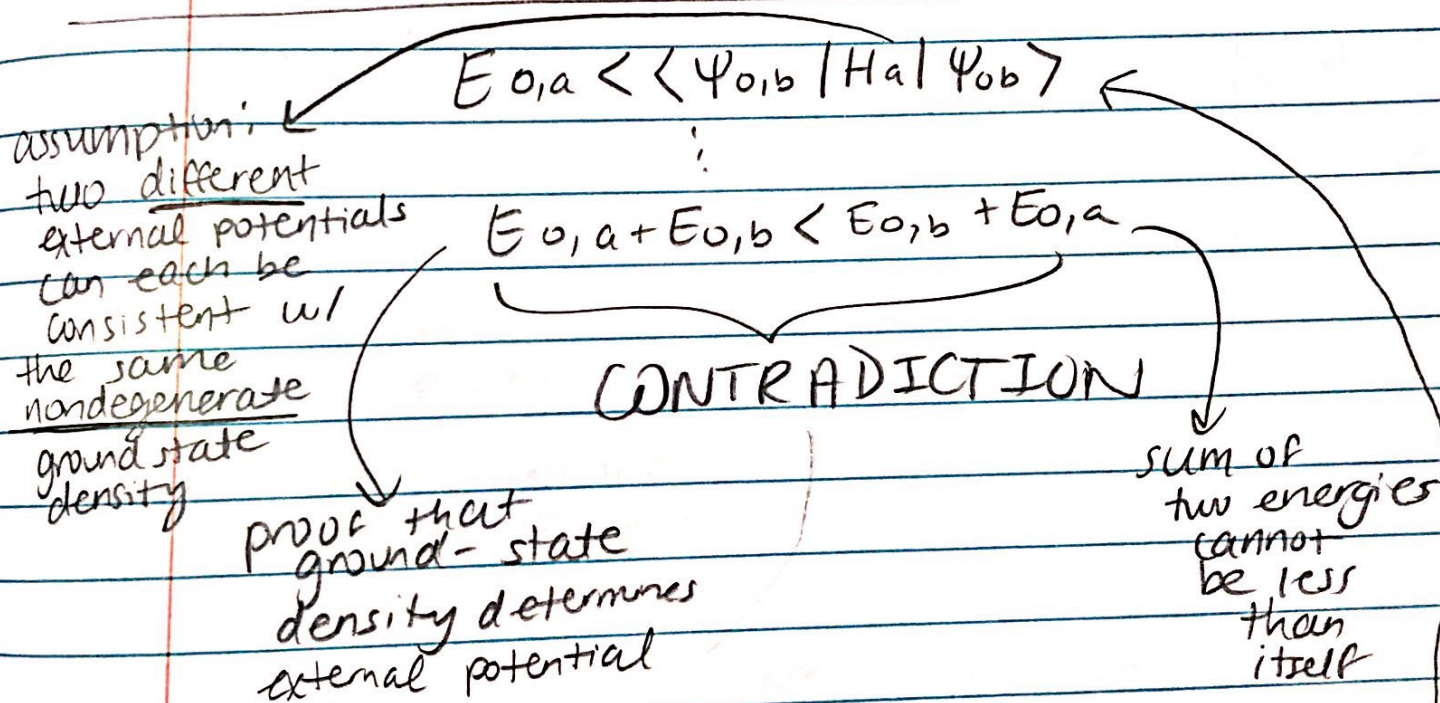 E0,a < ⟨Ψ0,b | Ha | Ψ0b⟩
⋮
E0,a + E0,b < E0,b + E0,a
CONTRADICTION
assumption:
two different
external potentials
can each be
consistent w/
the same
nondegenerate
ground state
density
proof that
ground-state
density determines
external potential
sum of
two energies
cannot
be less
than
itself